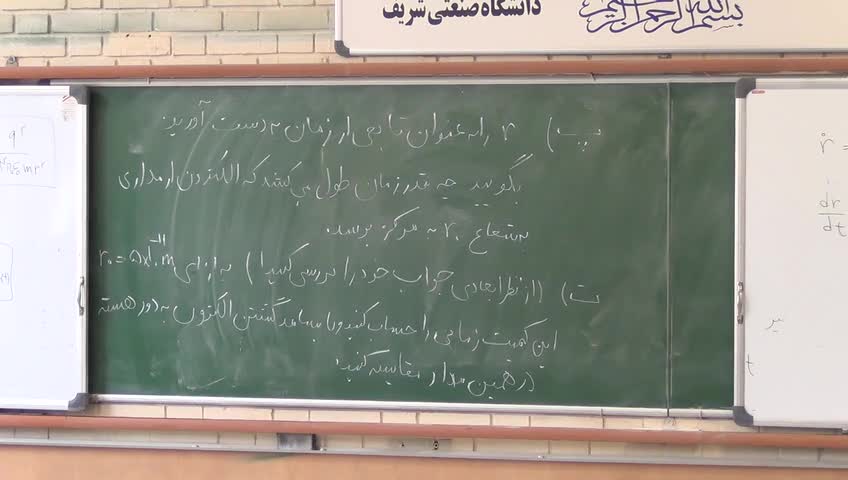 دانشگاه صنعتی شریف
بسم الله الرحمن الرحیم
پ) r را به عنوان تابعی از زمان به دست آورید.
بگویید چه قدر زمان طول می‌کشد که الکترون از مداری
به شعاع r۰ به مرکز برسد.
ت) (از نظر ابعادی جواب خود را بررسی کنید!) به ازای r۰ = ۵×۱۰⁻¹¹ m
این کمیت زمانی را حساب کنید و با بسامد گشتن الکترون به دور هسته
در همین مدار مقایسه کنید.
ṙ =
dr/dt